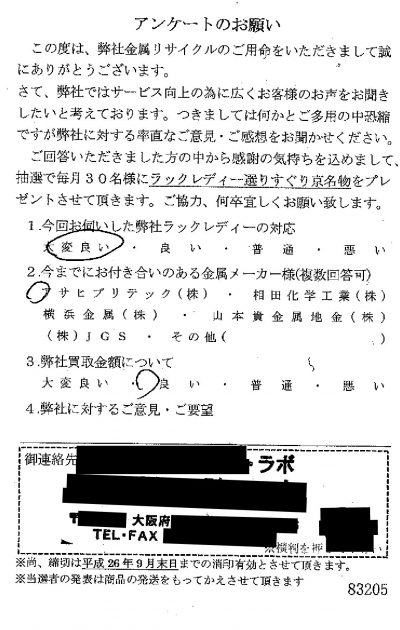 アンケートのお願い
この度は、弊社金属リサイクルのご用命をいただきまして誠
にありがとうございます。
さて、弊社ではサービス向上の為に広くお客様のお声をお聞き
したいと考えております。つきましては何かとご多用の中恐縮
ですが弊社に対する率直なご意見・ご感想をお聞かせください。
ご回答いただきました方の中から感謝の気持ちを込めまして、
抽選で毎月30名様にラックレディー選りすぐり京名物をプレ
ゼントさせて頂きます。ご協力、何卒宜しくお願い致します。
1.今回お伺いした弊社ラックレディーの対応
大変良い・良い・普通・悪い
2.今までにお付き合いのある金属メーカー様(複数回答可)
アサヒプリテック(株)・相田化学工業(株)
横浜金属(株)・山本貴金属地金(株)
(株)JGS・その他( )
3.弊社買取金額について
大変良い・良い・普通・悪い
4.弊社に対するご意見・ご要望
御連絡先
ラボ
〒 大阪府
TEL・FAX
※尚、締切は平成26年9月末日までの消印有効とさせて頂きます。
※当選者の発表は商品の発送をもってかえさせて頂きます
83205